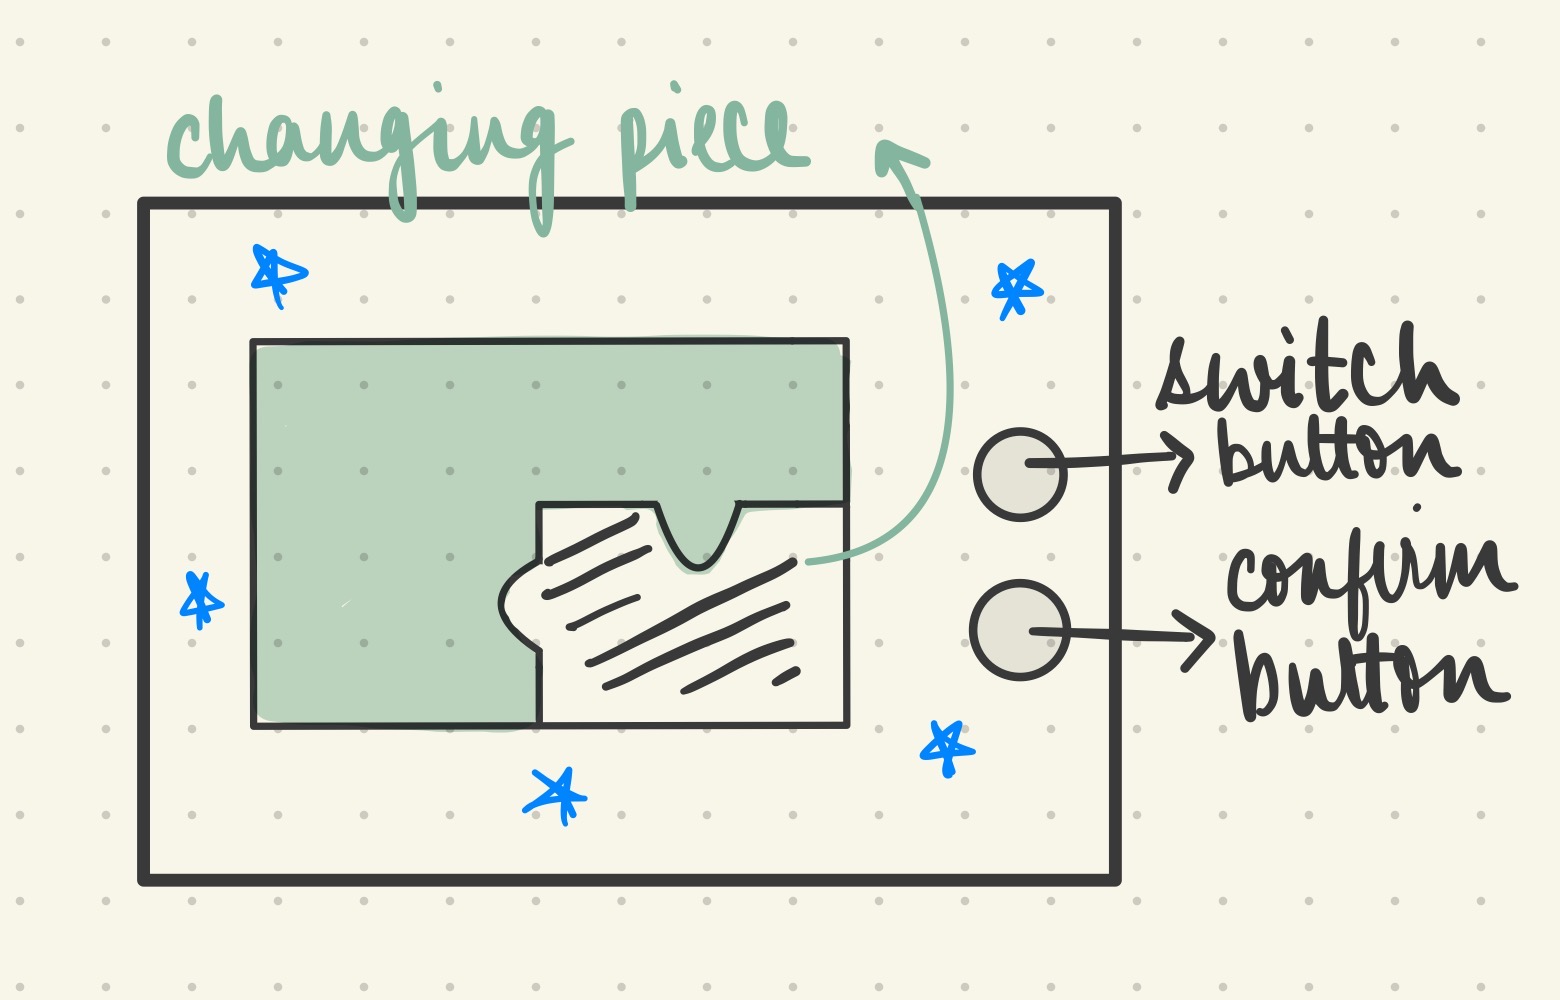 changing piece
switch
button
confirm
button